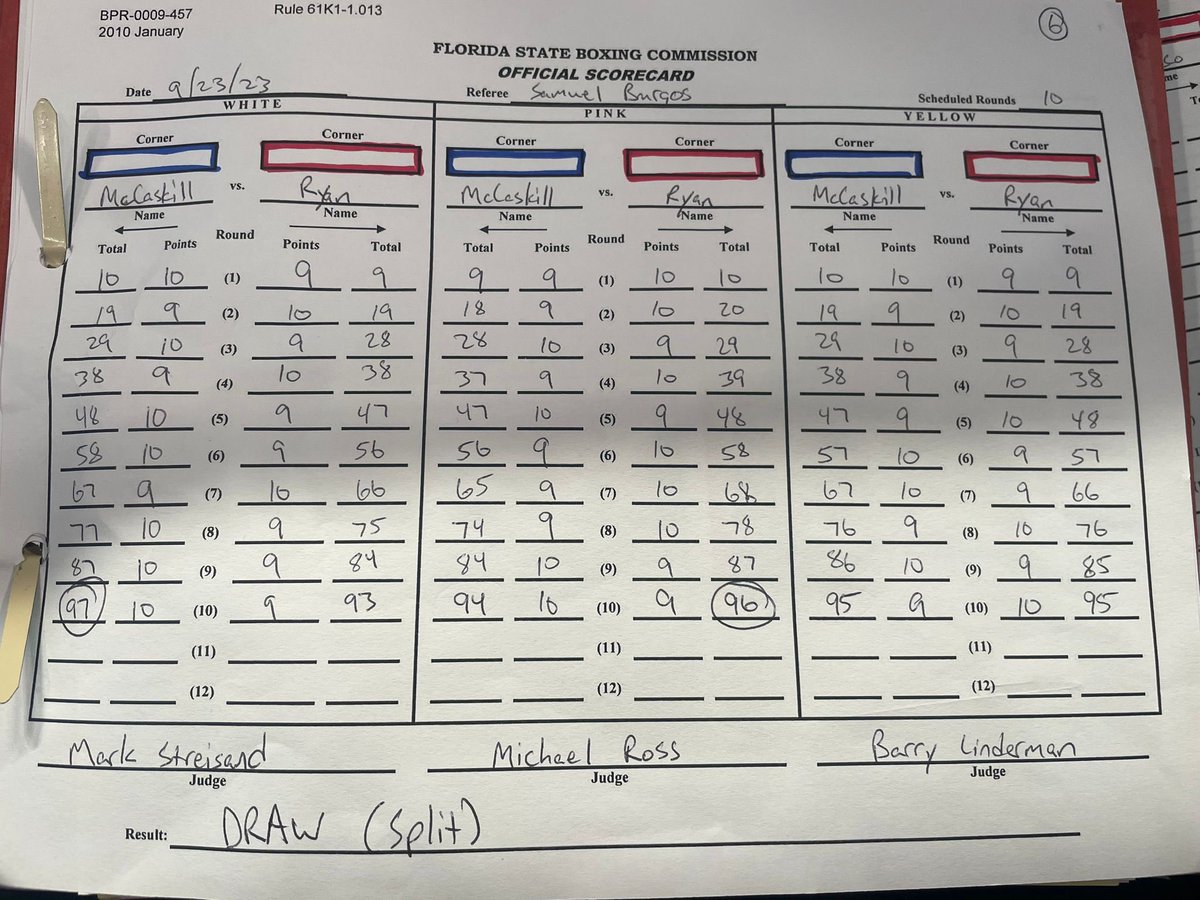 BPR-0009-457 Rule 61K1-1.013 6
2010 January
FLORIDA STATE BOXING COMMISSION
OFFICIAL SCORECARD
Date 9/23/23 Referee Samuel Burgos Scheduled Rounds 10
WHITE PINK YELLOW
Corner Corner Corner Corner Corner Corner
McCaskill vs. Ryan McCaskill vs. Ryan McCaskill vs. Ryan
Name Name Name Name Name Name
Total Points Round Points Total Total Points Round Points Total Total Points Round Points Total
10 10 (1) 9 9 9 9 (1) 10 10 10 10 (1) 9 9
19 9 (2) 10 19 18 9 (2) 10 20 19 9 (2) 10 19
29 10 (3) 9 28 28 10 (3) 9 29 29 10 (3) 9 28
38 9 (4) 10 38 37 9 (4) 10 39 38 9 (4) 10 38
48 10 (5) 9 47 47 10 (5) 9 48 47 9 (5) 10 48
58 10 (6) 9 56 56 9 (6) 10 58 57 10 (6) 9 57
67 9 (7) 10 66 65 9 (7) 10 68 67 10 (7) 9 66
77 10 (8) 9 75 74 9 (8) 10 78 76 9 (8) 10 76
87 10 (9) 9 84 84 10 (9) 9 87 86 10 (9) 9 85
97 10 (10) 9 93 94 10 (10) 9 96 95 9 (10) 10 95
(11) (11) (11)
(12) (12) (12)
Mark Streisand Michael Ross Barry Linderman
Judge Judge Judge
Result: DRAW (Split)